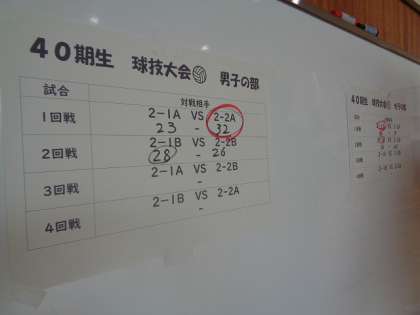 40期生 球技大会 男子の部
試合 対戦相手
1回戦 2-1A VS 2-2A
23 - 32
2回戦 2-1B VS 2-2B
28 - 26
3回戦 2-1A VS 2-2B
-
4回戦 2-1B VS 2-2A
-
40期生 球技大会